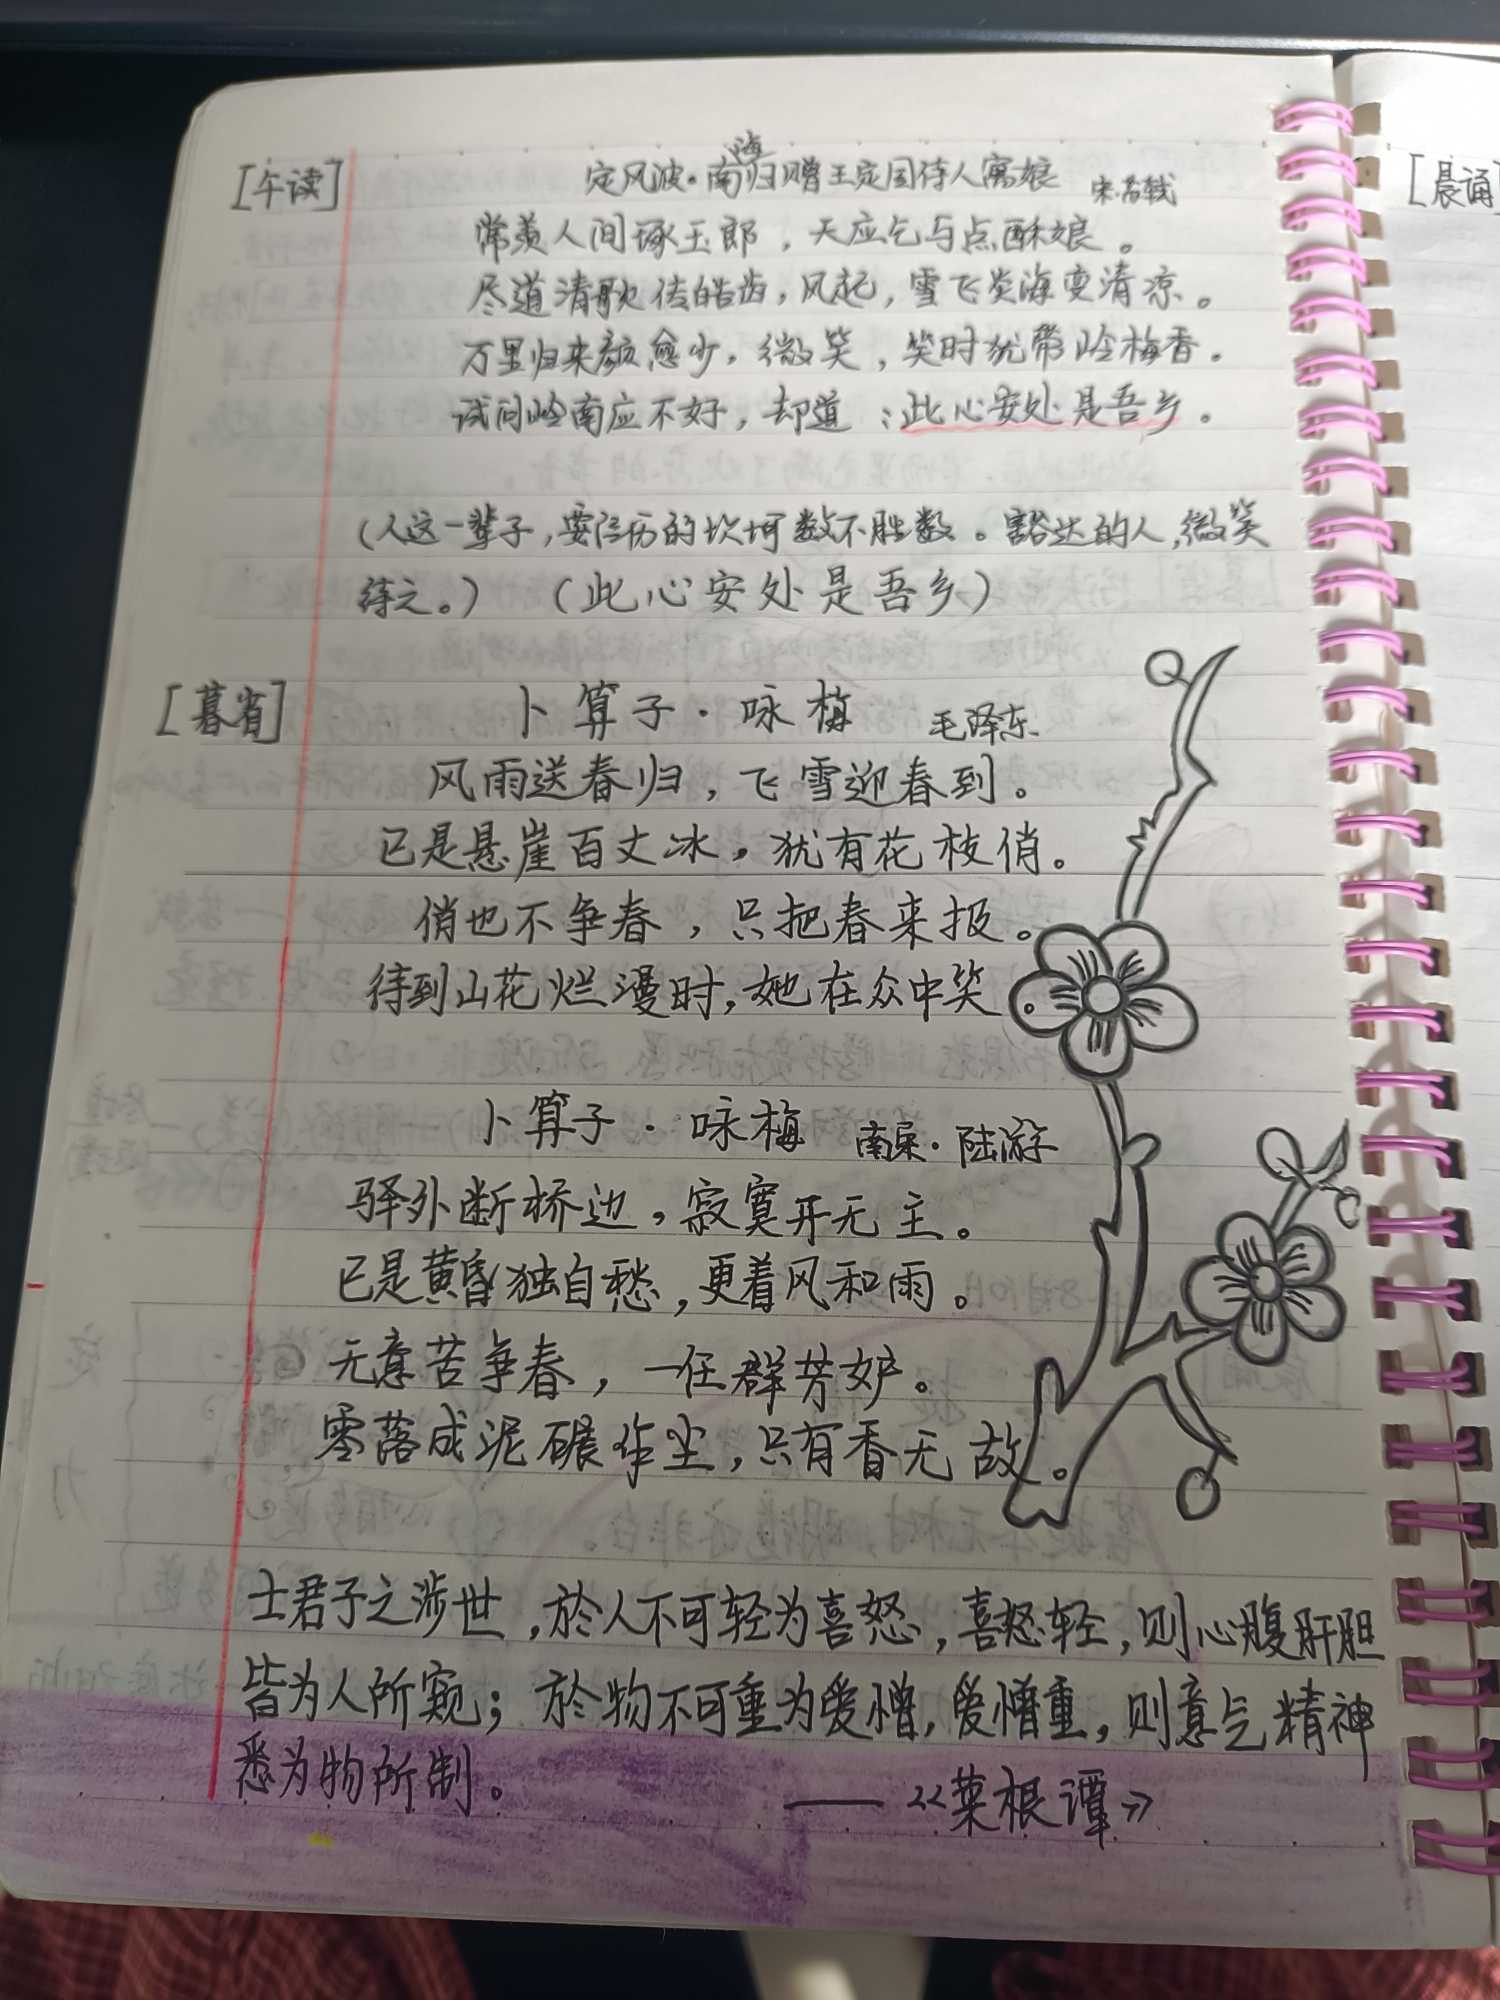 [午读] 定风波·南海归赠王定国侍人寓娘 宋·苏轼
常羡人间琢玉郎，天应乞与点酥娘。
尽道清歌传皓齿，风起，雪飞炎海变清凉。
万里归来颜愈少，微笑，笑时犹带岭梅香。
试问岭南应不好，却道：此心安处是吾乡。
(人这一辈子，要经历的坎坷数不胜数。豁达的人，微笑
待之。)（此心安处是吾乡）
[暮省] 卜算子·咏梅 毛泽东
风雨送春归，飞雪迎春到。
已是悬崖百丈冰，犹有花枝俏。
俏也不争春，只把春来报。
待到山花烂漫时，她在众中笑。
卜算子·咏梅 南宋·陆游
驿外断桥边，寂寞开无主。
已是黄昏独自愁，更着风和雨。
无意苦争春，一任群芳妒。
零落成泥碾作尘，只有香无故。
士君子之涉世，於人不可轻为喜怒，喜怒轻，则心腹肝胆
皆为人所窥；於物不可重为爱憎，爱憎重，则意气精神
悉为物所制。
——《菜根谭》
[晨诵]